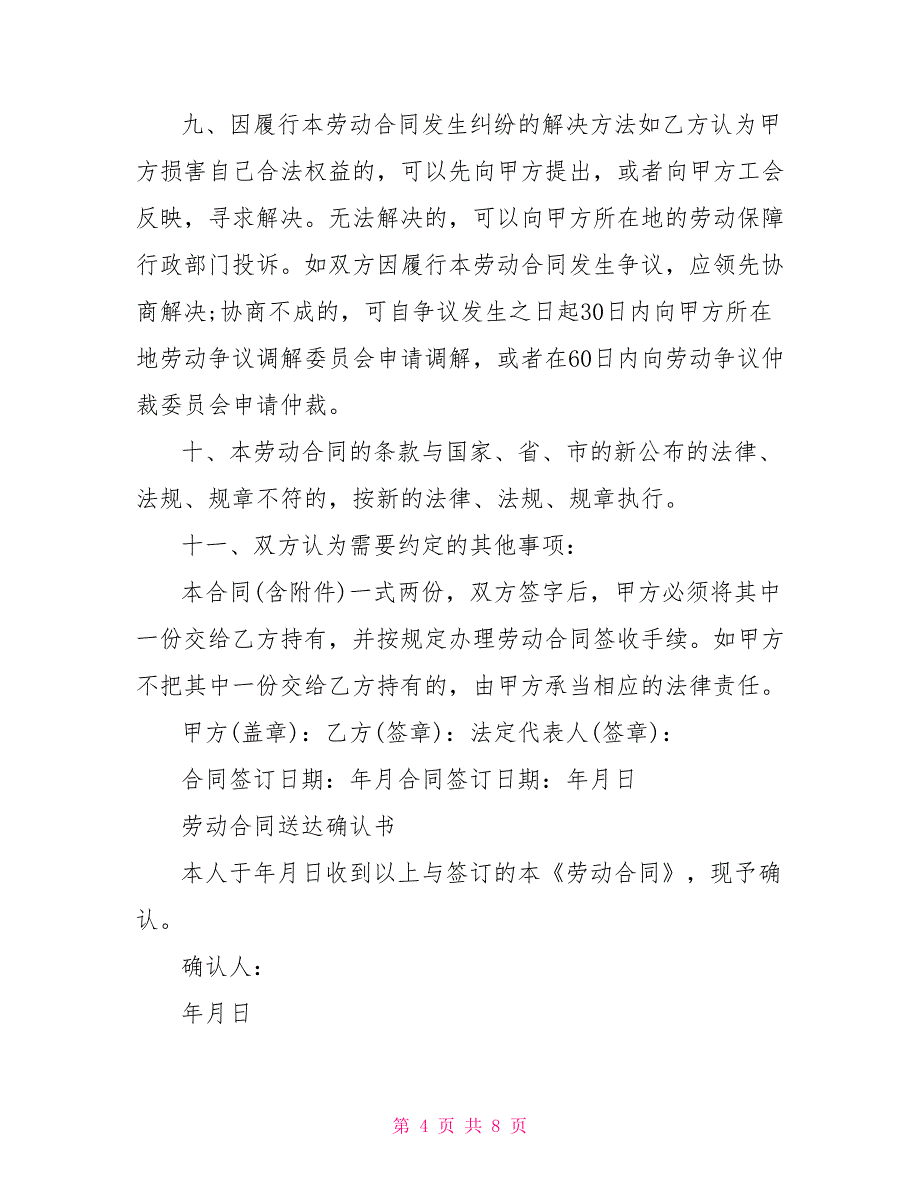 九、因履行本劳动合同发生纠纷的解决方法如乙方认为甲
方损害自己合法权益的，可以先向甲方提出，或者向甲方工会
反映，寻求解决。无法解决的，可以向甲方所在地的劳动保障
行政部门投诉。如双方因履行本劳动合同发生争议，应领先协
商解决;协商不成的，可自争议发生之日起30日内向甲方所在
地劳动争议调解委员会申请调解，或者在60日内向劳动争议仲
裁委员会申请仲裁。
十、本劳动合同的条款与国家、省、市的新公布的法律、
法规、规章不符的，按新的法律、法规、规章执行。
十一、双方认为需要约定的其他事项：
本合同(含附件)一式两份，双方签字后，甲方必须将其中
一份交给乙方持有，并按规定办理劳动合同签收手续。如甲方
不把其中一份交给乙方持有的，由甲方承当相应的法律责任。
甲方(盖章)：乙方(签章)：法定代表人(签章)：
合同签订日期：年月合同签订日期：年月日
劳动合同送达确认书
本人于年月日收到以上与签订的本《劳动合同》，现予确
认。
确认人：
年月日
第 4 页 共 8 页